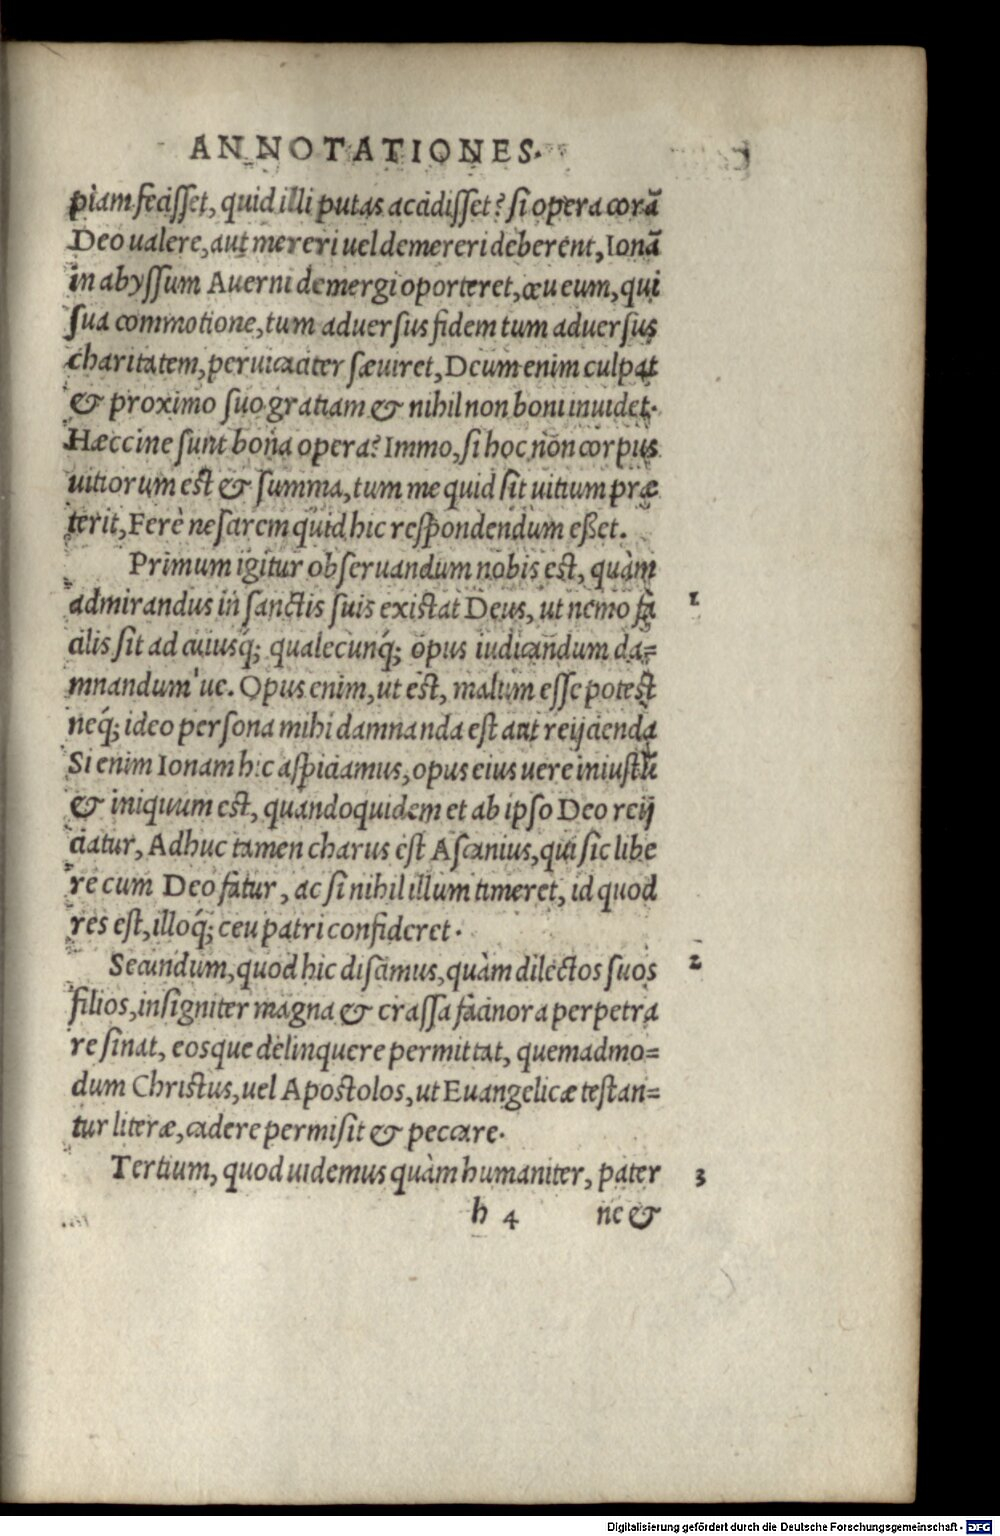 ANNOTATIONES.
piam fecisset, quid illi putas accidisset? si opera corā
Deo ualere, aut mereri uel demereri deberent, Ionā
in abyssum Auerni demergi oporteret, ceu eum, qui
sua commotione, tum aduersus fidem tum aduersus
charitatem, peruicaciter sæuiret, Deum enim culpat
& proximo suo gratiam & nihil non boni inuidet.
Hæccine sunt bona opera? Immo, si hoc non corpus
uitiorum est & summa, tum me quid sit uitium præ
terit, Ferè nesarem quid hic respondendum eßet.
Primum igitur obseruandum nobis est, quàm
admirandus in sanctis suis existat Deus, ut nemo fa 1
cilis sit ad cuiusq́; qualecunq́; opus iudicandum da=
mnandum'ue. Opus enim, ut est, malum esse potest
neq́; ideo persona mihi damnanda est aut reijcienda
Si enim Ionam hic aspiciamus, opus eius uere iniustū
& iniquum est, quandoquidem et ab ipso Deo reij
ciatur, Adhuc tamen charus est Ascanius, qui sic libe
re cum Deo fatur, ac si nihil illum timeret, id quod
res est, illoq́; ceu patri confideret.
Secundum, quod hic discimus, quàm dilectos suos 2
filios, insigniter magna & crassa facinora perpetra
re sinat, eosque delinquere permittat, quemadmo=
dum Christus, uel Apostolos, ut Euangelicæ testan=
tur literæ, cadere permisit & peccare.
Tertium, quod uidemus quàm humaniter, pater 3
h 4 ne &
Digitalisierung gefördert durch die Deutsche Forschungsgemeinschaft - DFG